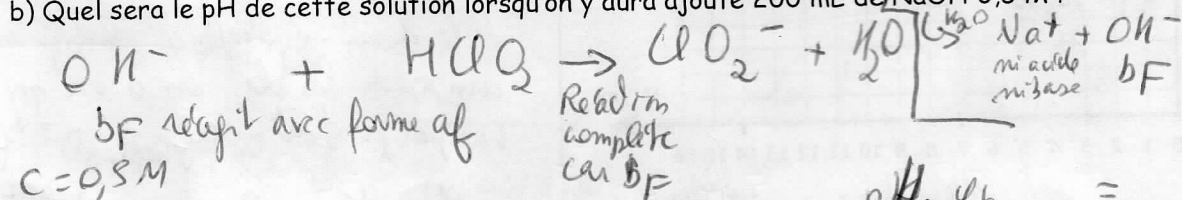 b) Quel sera le pH de cette solution lorsqu'on y aura ajouté 200 mL de NaOH 0,5 M
OH⁻ + HClO₂ → ClO₂⁻ + H₂O
H₂O Na⁺ + OH⁻
ni acide bF
ni base
bF réagit avec forme af
Réaction
complète
car bF
C = 0,5 M
pH =